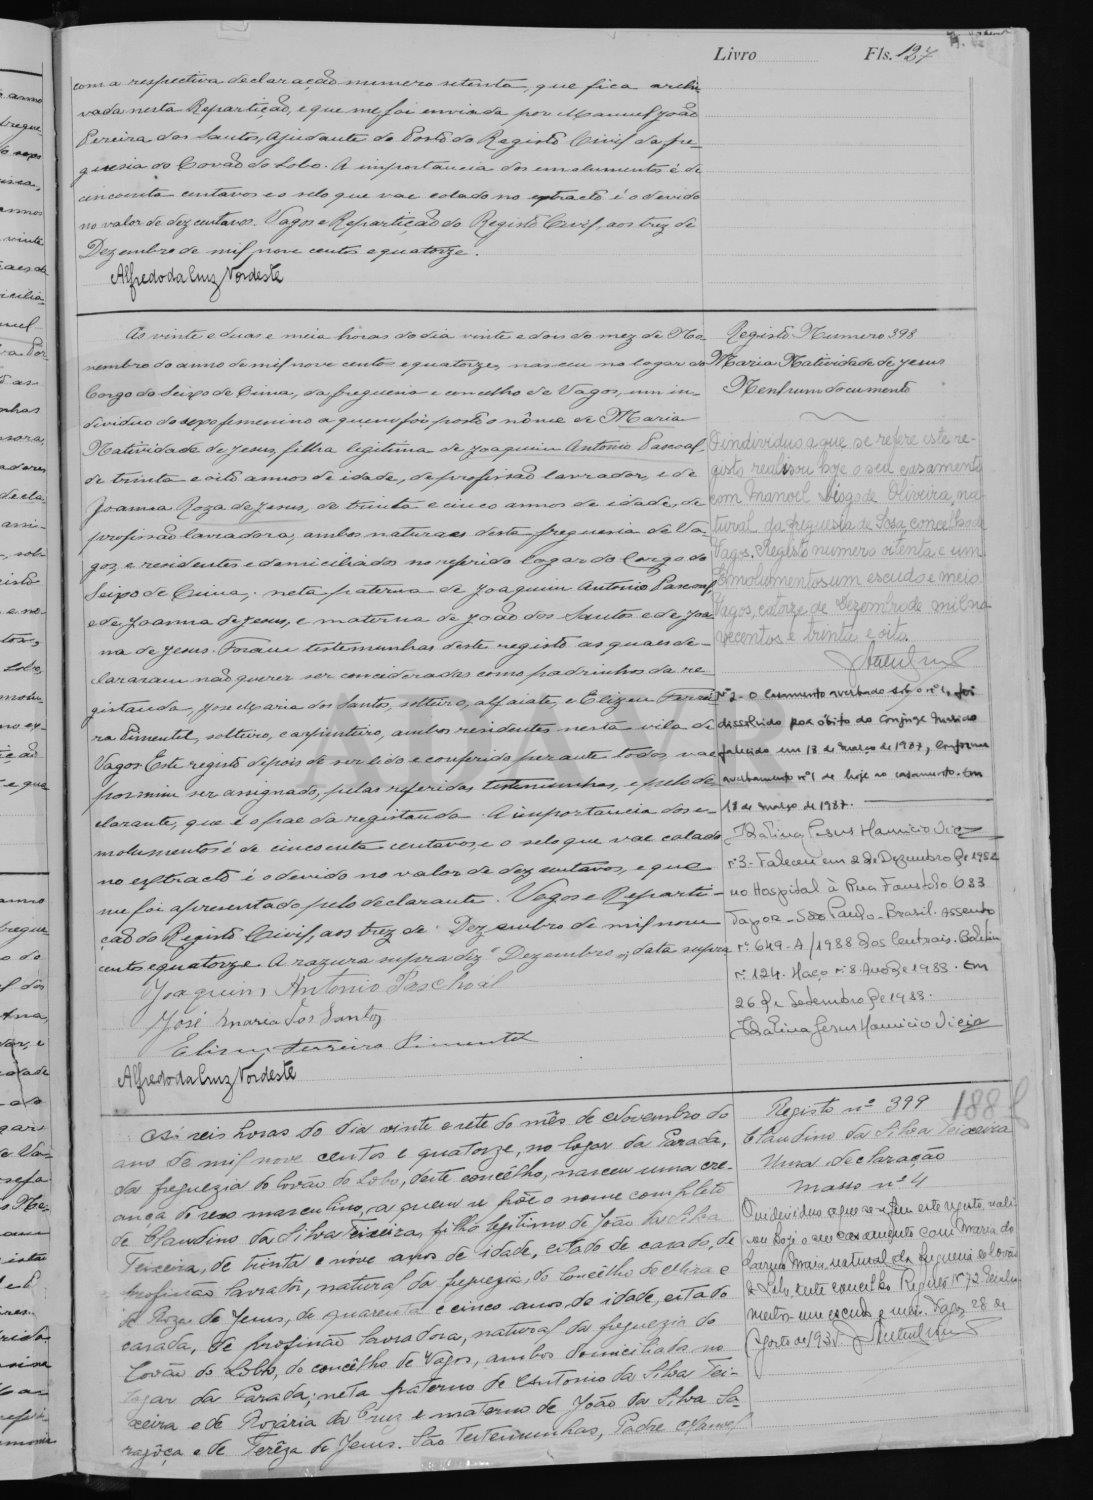 Livro Fls. 127
com a respectiva declaração numero setenta, que fica archi
vada nesta Repartição, e que me foi enviada por Manuel João
Pereira dos Santos, Ajudante do Posto do Registo Civil da fre
guesia do Covão do Lobo. A importancia dos emolumentos é de
cincoenta centavos e o selo que vae colado no extracto é o devido
no valor de dez centavos. Vagos e Repartição do Registo Civil, aos trez de
Dezembro de mil nove centos e quatorze.
Alfredo da Cruz Nordeste
Registo Numero 398
Maria Natividade de Jesus
Nenhum documento
Ás vinte e duas e meia horas do dia vinte e dois do mez de No-
vembro do anno de mil nove centos e quatorze, nasceu no logar do
Corgo do Seixo de Cima, da freguesia e concelho de Vagos, um in-
dividuo do sexo femenino a quem foi posto o nôme de Maria
Natividade de Jesus, filha legitima de Joaquim Antonio Pascoal
de trinta e oito annos de idade, de profissão lavrador, e de
Joanna Roza de Jesus, de trinta e cinco annos de idade, de
profissão lavradora, ambos naturaes desta freguesia de Va-
gos, e residentes e domiciliados no referido logar do Corgo do
Seixo de Cima; neta paterna de Joaquim Antonio Pascoal
e de Joanna de Jesus, e materna de João dos Santos e de Joa
na de Jesus. Foram testemunhas deste registo as quaes de-
clararam não querer ser concideradas como padrinhos da re-
gistanda, José Maria dos Santos, solteiro, alfaiate, e Elizeu Ferrei
ra Pimentel, solteiro, carpinteiro, ambos residentes nesta vila de
Vagos. Este registo depois de ser lido e conferido perante todos vae
por mim ser assignado, pelas referidas testemunhas, e pelo de
clarante, que é o pae da registanda. A importancia dos e-
molumentos é de cincoenta centavos, e o selo que vae colado
no extracto é o devido no valor de dez centavos, e que
me foi apresentado pelo declarante. Vagos e Reparti-
ção do Registo Civil, aos trez de Dezembro de mil nove
centos e quatorze. A razura supra diz "Dezembro", data supra
Joaquim Antonio Paschoal
José Maria dos Santos
Elizeu Ferreira Pimentel
Alfredo da Cruz Nordeste
O individuo a que se refere este re-
gisto realisou hoje o seu casamento
com Manoel Diogo de Oliveira, na-
tural da freguesia de Sosa, concelho de
Vagos. Registo numero oitenta e um
Emolumentos um escudo e meio
Vagos, catorze de Dezembro de mil no
vecentos e trinta e oito.
Nº 2 - O casamento averbado sob o nº 1, foi
dissolvido por óbito do conjuge marido
falecido em 13 de março de 1987, conforme
averbamento nº 1 de hoje ao casamento. Em
18 de março de 1987.
Idalina Jesus Mauricio Vieira
nº 3 - Faleceu em 2 de Dezembro de 1982
no Hospital à Rua Faustolo 633
- São Paulo - Brasil. Assento
nº 649-A/1988 dos Centrais. Boletim
nº 124. Maço nº 8. Ano de 1983. Em
26 de Setembro de 1983.
Idalina Jesus Mauricio Vieira
Registo nº 399
Claudino da Silva Teixeira
Uma declaração
Masso nº 4
188
Ás seis horas do dia vinte e sete do mês de Novembro do
ano de mil nove centos e quatorze, no logar da Parada,
da freguezia do Covão do Lobo, deste concêlho, nasceu uma cre-
ança do sexo masculino, a quem se põe o nome completo
de Claudino da Silva Teixeira, filho legitimo de João da Silva
Teixeira, de trinta e nóve anos de idade, estado de casado, de
profissão lavradôr, natural da freguezia, do concêlho de Mira e
de Roza de Jesus, de quarenta e cinco anos de idade, estado
casada, de profissão lavradora, natural da freguezia do
Covão do Lobo, do concêlho de Vagos, ambos domiciliados no
logar da Parada; neta paterno de Antonio da Silva Tei-
xeira e de Rozaria da Cruz e materno de João da Silva Sa-
rajôça e de Terêza de Jesus. São testemunhas, Padre Manoel
O individuo a que se refere este registo reali-
sou hoje o seu casamento com Maria do
Carmo Maia, natural da freguesia do Covão
do Lobo, deste concelho. Registo Nº 72. Emolu-
mentos um escudo e meio. Vagos, 28 de
Agosto de 193
ADAVR